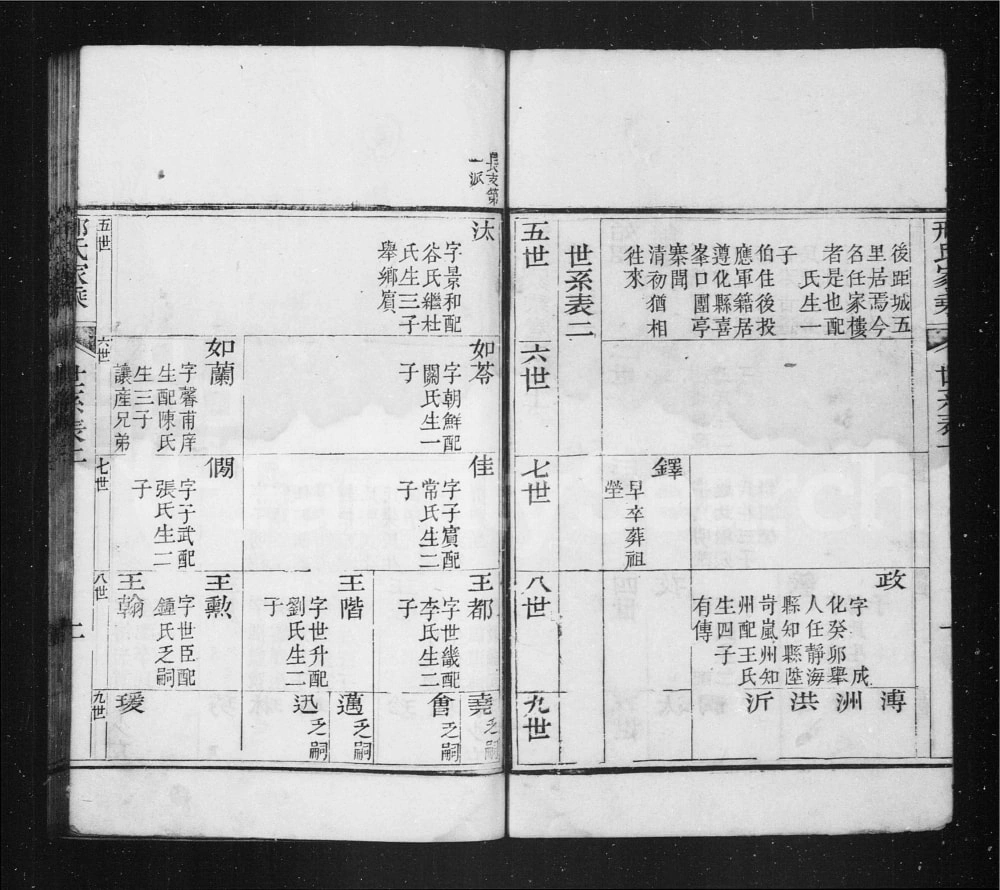 後距城五
里居焉今
名任家樓
者是也配
氏生一
子
伯住後投
應軍籍居
遵化縣喜
峯口團亭
寨聞
清初猶相
徃來
鐸
早卒葬祖
塋
政
字成
化癸卯舉
人任靜海
縣知縣陞
岢嵐州知
州配王氏
生四子
有傳
溥
洲
洪
沂
世系表二
五世
六世
七世
八世
九世
長支第
一派
汰
字景和配
谷氏繼杜
氏生三子
舉鄉賔
如苓
字朝鮮配
關氏生一
子
佳
字子賔配
常氏生二
子
王都
字世畿配
李氏生二
子
堯乏嗣
會乏嗣
王階
字世升配
劉氏生二
子
邁乏嗣
迅乏嗣
如蘭
字馨甫庠
生配陳氏
生三子
讓産兄弟
僩
字子武配
張氏生二
子
王勲
字世臣配
鍾氏乏嗣
王翰
瑗
五世
六世
七世
八世
九世
氏家乘
世系表二
二